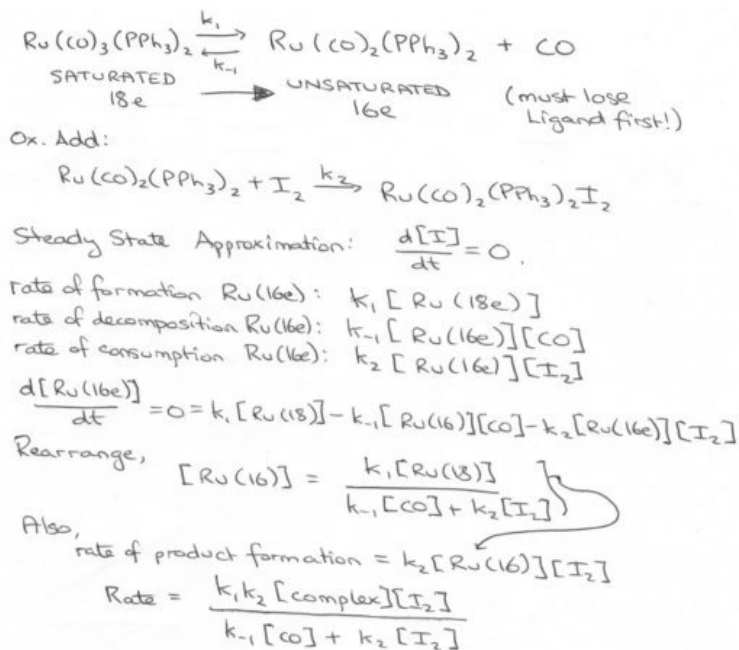 Ru(CO)₃(PPh₃)₂ ⇌ Ru(CO)₂(PPh₃)₂ + CO
k₁
k₋₁
SATURATED → UNSATURATED (must lose
18e 16e Ligand first!)
Ox. Add:
Ru(CO)₂(PPh₃)₂ + I₂ —k₂→ Ru(CO)₂(PPh₃)₂I₂
Steady State Approximation: d[I]/dt = 0.
rate of formation Ru(16e): k₁[Ru(18e)]
rate of decomposition Ru(16e): k₋₁[Ru(16e)][CO]
rate of consumption Ru(16e): k₂[Ru(16e)][I₂]
d[Ru(16e)]/dt = 0 = k₁[Ru(18)] - k₋₁[Ru(16)][CO] - k₂[Ru(16e)][I₂]
Rearrange,
[Ru(16)] = k₁[Ru(18)] / k₋₁[CO] + k₂[I₂]
Also,
rate of product formation = k₂[Ru(16)][I₂]
Rate = k₁k₂[complex][I₂] / k₋₁[CO] + k₂[I₂]